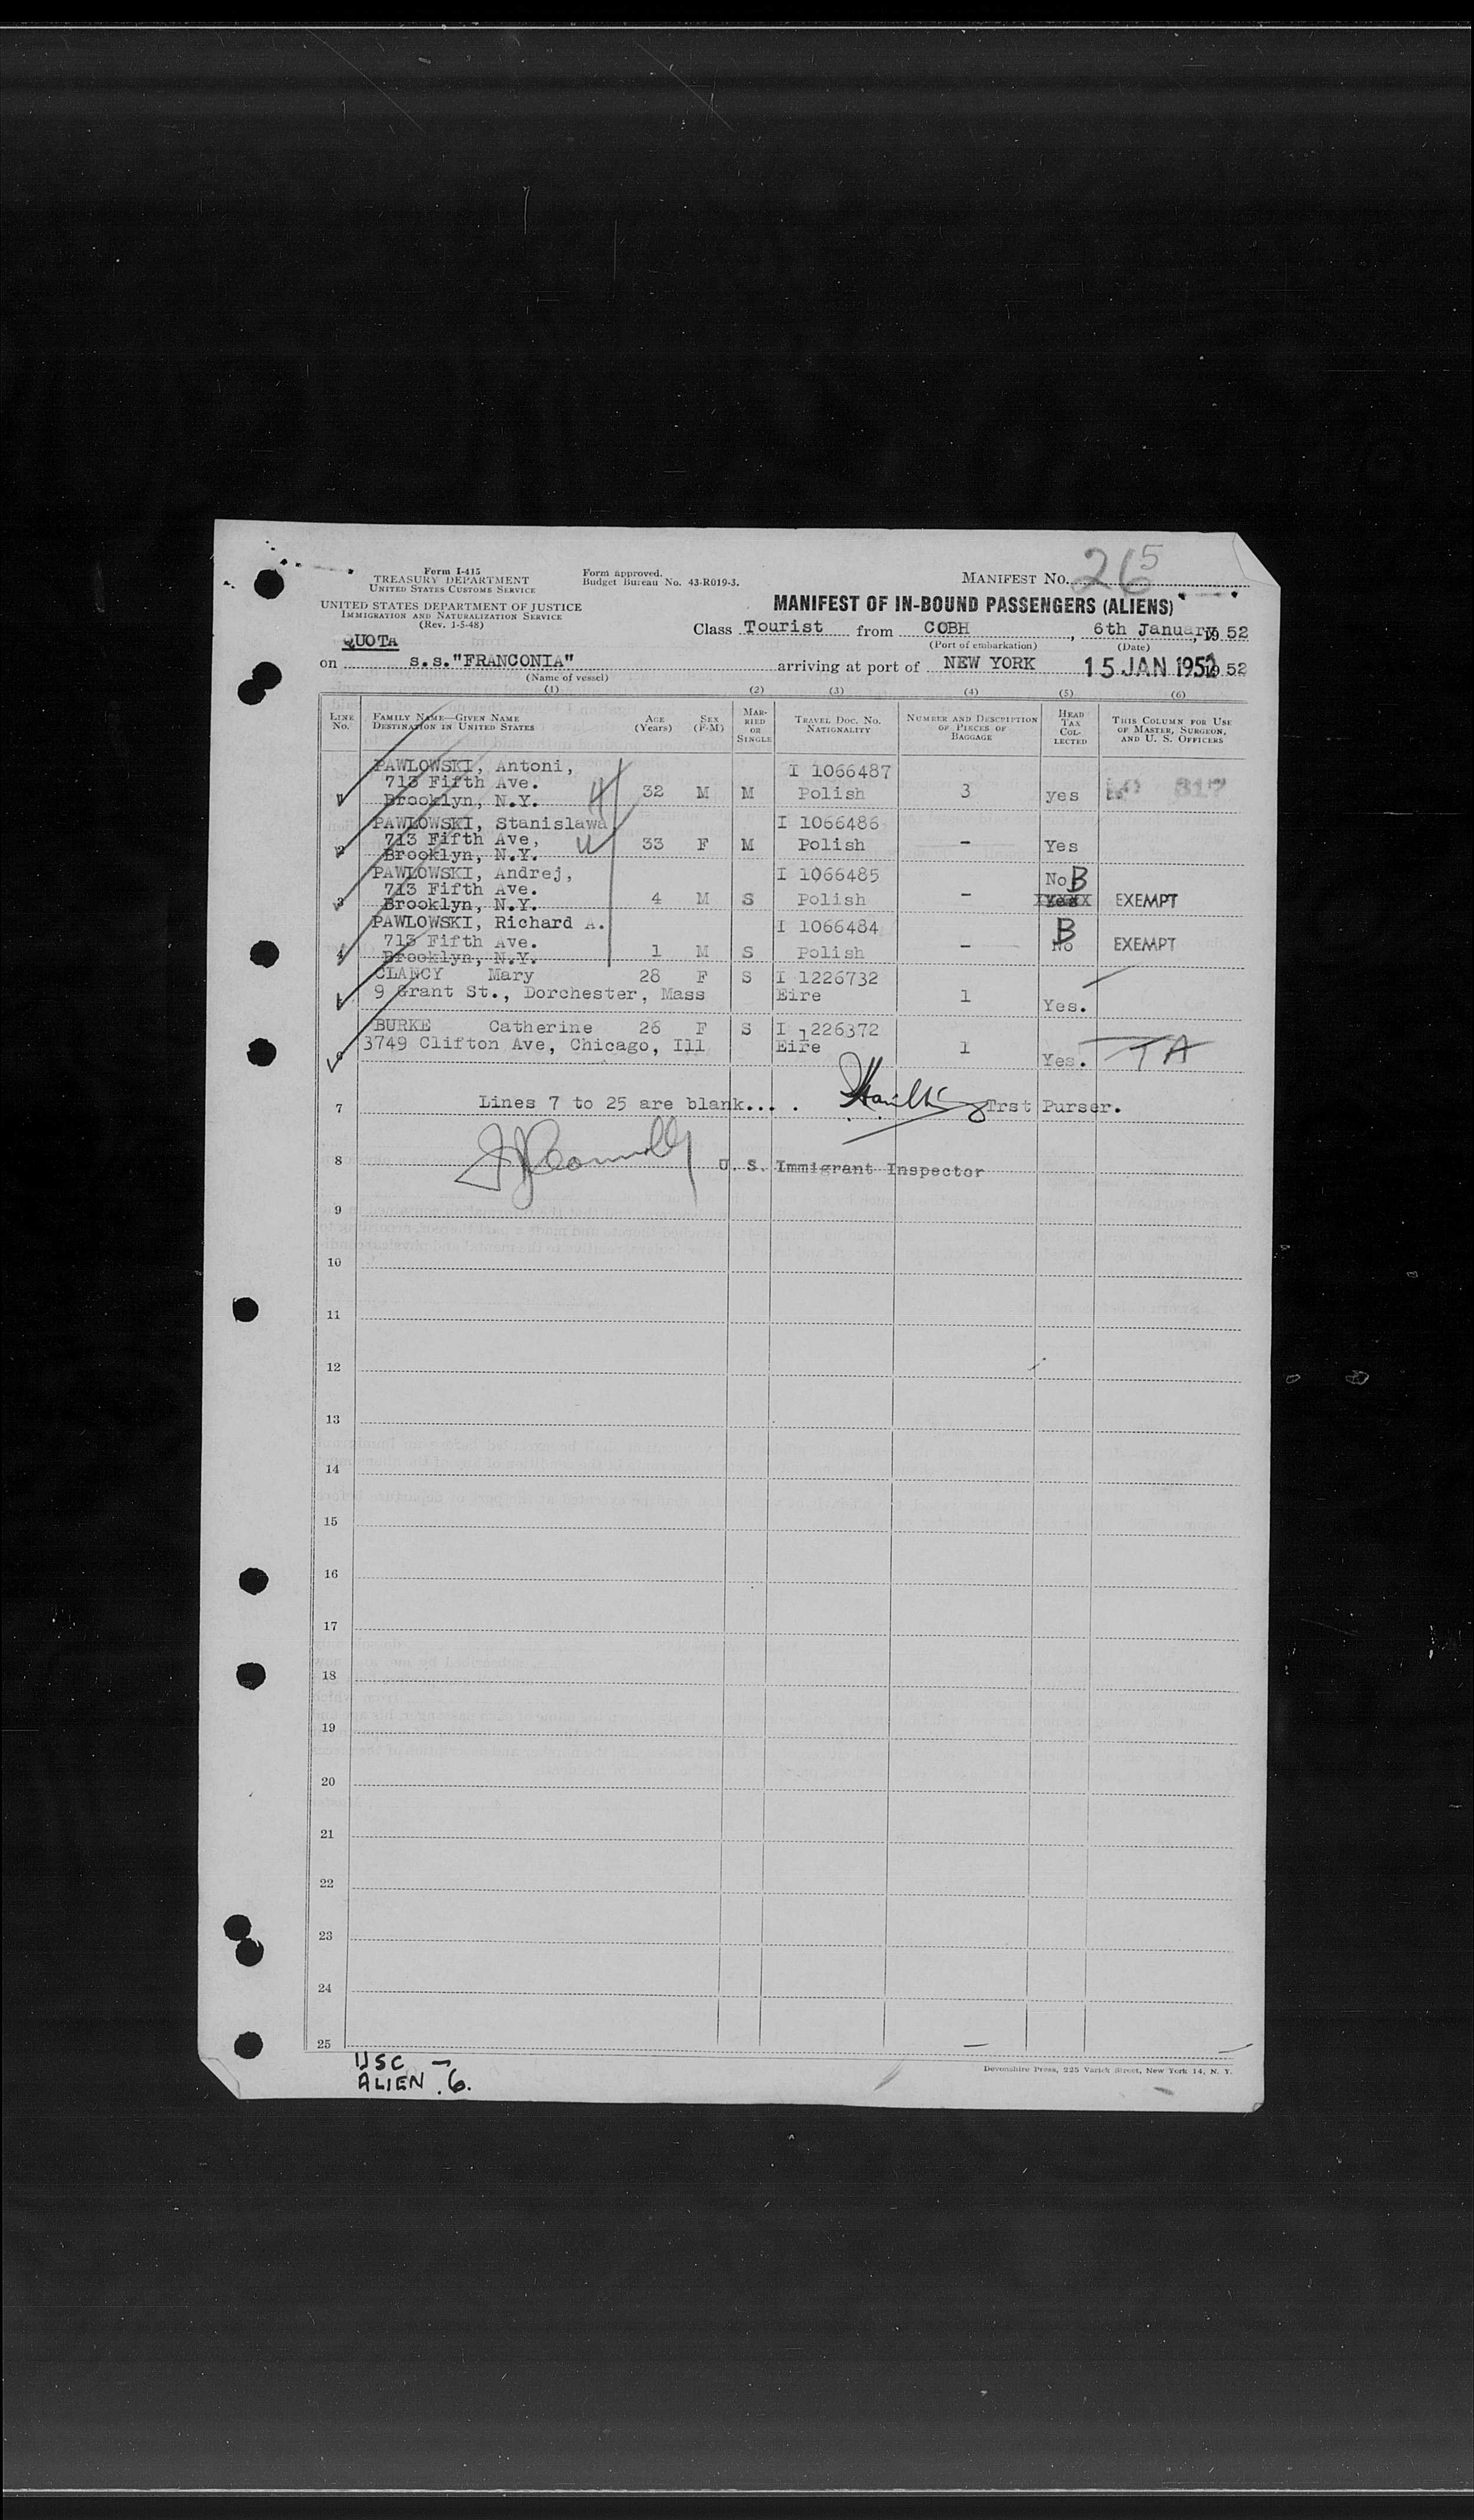 Form I-415
TREASURY DEPARTMENT
UNITED STATES CUSTOMS SERVICE
Form approved.
Budget Bureau No. 43-R019-3.
MANIFEST NO. 265
UNITED STATES DEPARTMENT OF JUSTICE
IMMIGRATION AND NATURALIZATION SERVICE
(Rev. 1-5-48)
MANIFEST OF IN-BOUND PASSENGERS (ALIENS)
QUOTA
Class Tourist from COBH, 6th January, 19 52
(Port of embarkation) (Date)
on s.s."FRANCONIA" arriving at port of NEW YORK 15 JAN 1952 19 52
(Name of vessel)
(1) (2) (3) (4) (5) (6)
LINE NO. FAMILY NAME—GIVEN NAME DESTINATION IN UNITED STATES AGE (Years) SEX (F-M) MARRIED OR SINGLE TRAVEL DOC. NO. NATIONALITY NUMBER AND DESCRIPTION OF PIECES OF BAGGAGE HEAD TAX COLLECTED THIS COLUMN FOR USE OF MASTER, SURGEON, AND U. S. OFFICERS
PAWLOWSKI, Antoni, I 1066487
713 Fifth Ave.
1 Brooklyn, N.Y. 32 M M Polish 3 yes 317
PAWLOWSKI, Stanislawa I 1066486
713 Fifth Ave, 33 F M Polish - Yes
2 Brooklyn, N.Y.
PAWLOWSKI, Andrej, I 1066485 No B
713 Fifth Ave.
3 Brooklyn, N.Y. 4 M S Polish - Yes EXEMPT
PAWLOWSKI, Richard A. I 1066484 B
713 Fifth Ave. - No EXEMPT
4 Brooklyn, N.Y. 1 M S Polish
CLANCY Mary 28 F S I 1226732
9 Grant St., Dorchester, Mass Eire 1 Yes.
BURKE Catherine 26 F S I 1226372
6 3749 Clifton Ave, Chicago, Ill Eire 1 Yes. TA
7 Lines 7 to 25 are blank.... Trst Purser.
8 U. S. Immigrant Inspector
9
10
11
12
13
14
15
16
17
18
19
20
21
22
23
24
25
USC -
ALIEN 6.
Devonshire Press, 225 Varick Street, New York 14, N. Y.